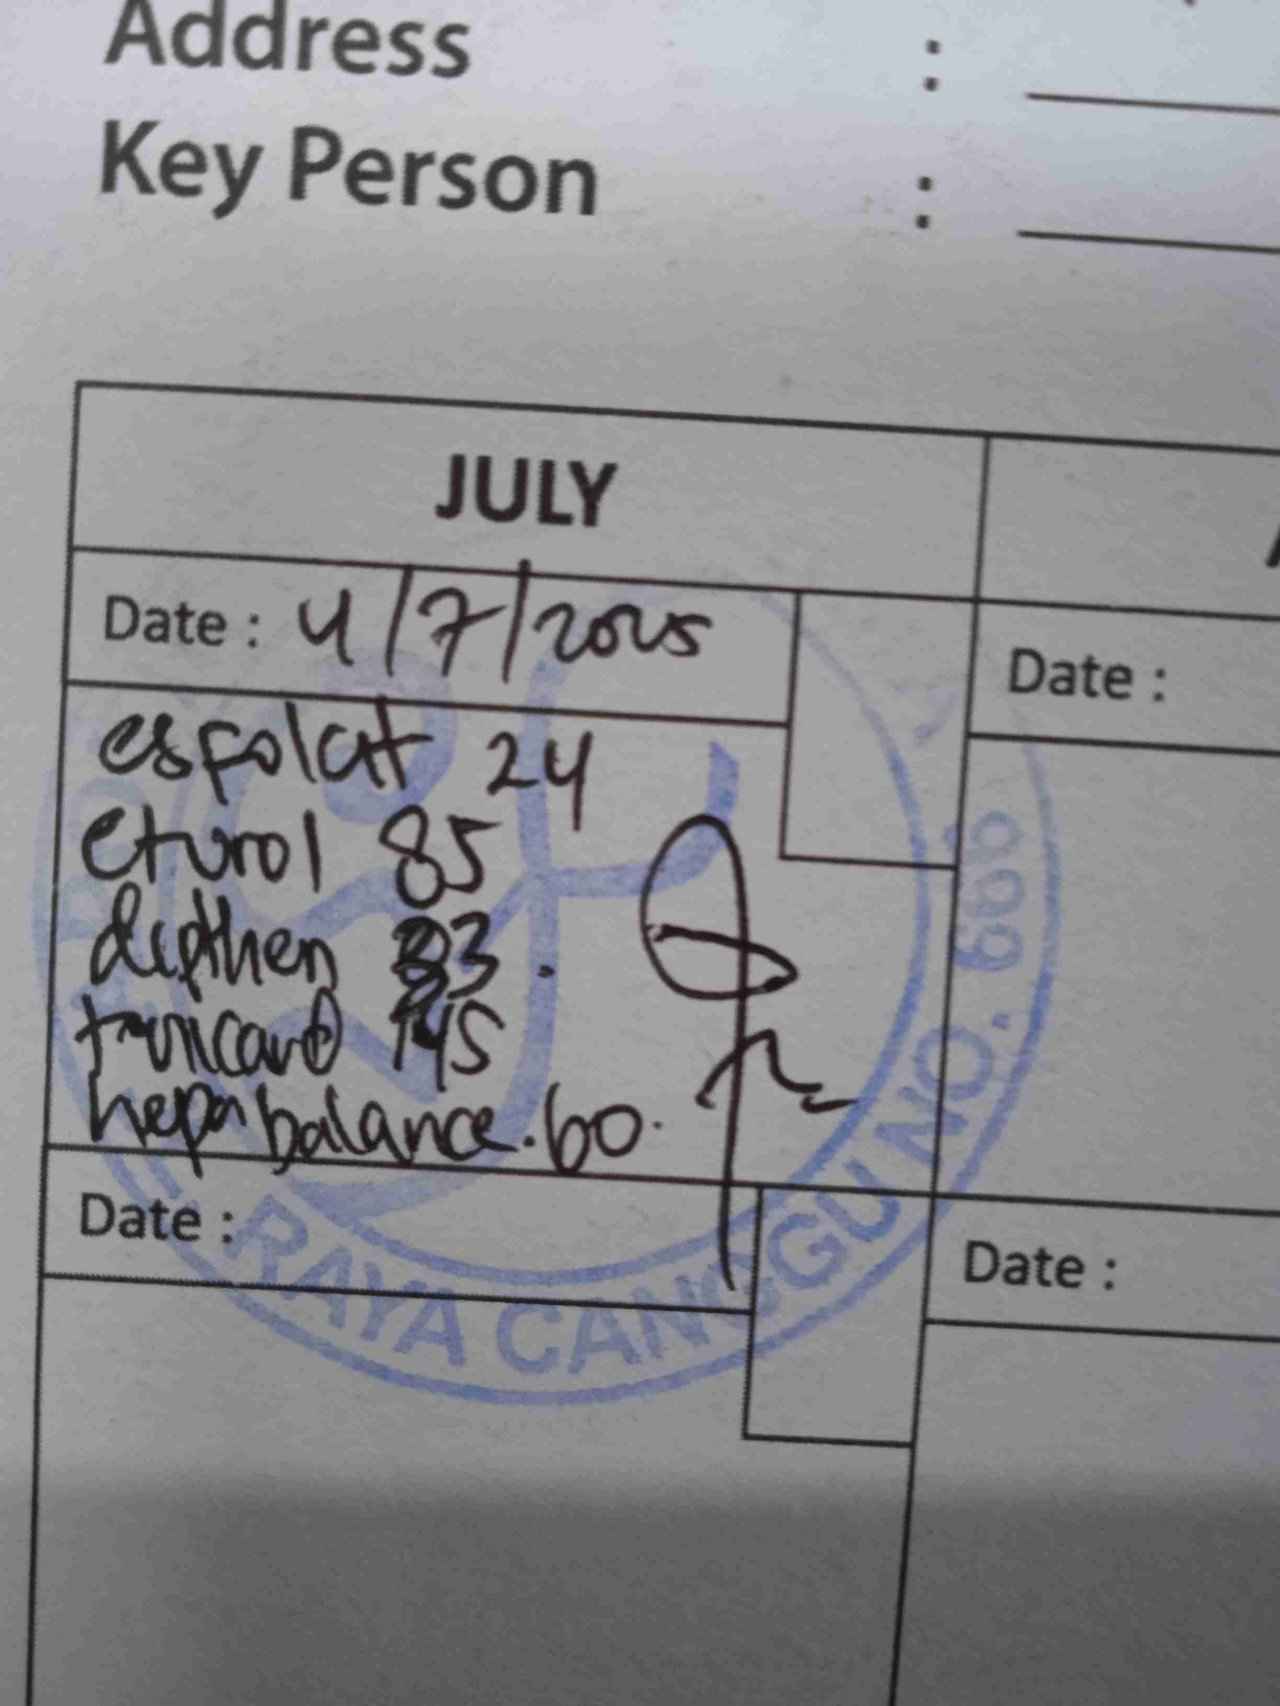 Address :
Key Person :
JULY
Date : 4/7/2025
Date :
esfolat 24
eturol 85
depthen 33.
145
hepa balance. 60.
Date :
Date :
RAYA CANGGU NO. 666